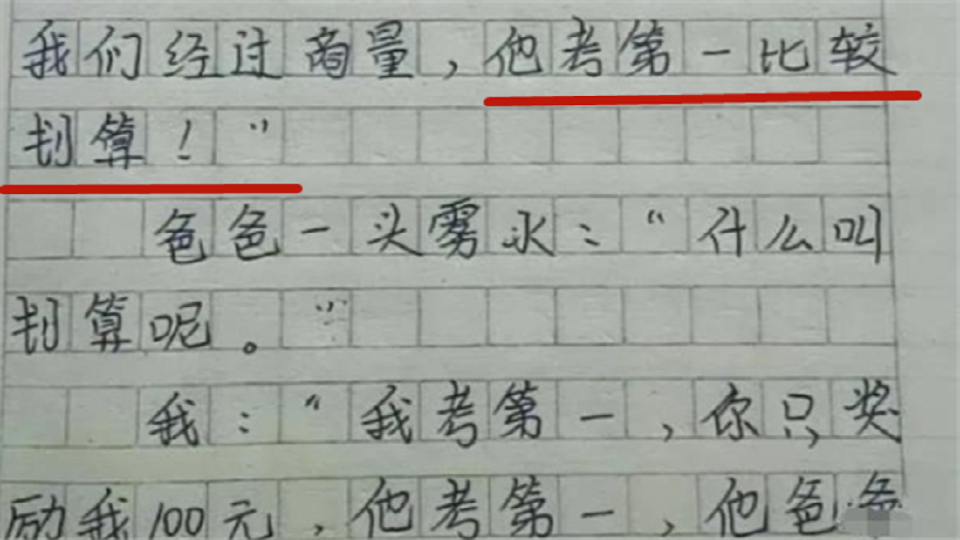 我们经过商量，他考第一比较
划算！”
爸爸一头雾水：“什么叫
划算呢。”
我：“我考第一，你只奖
励我100元，他考第一，他爸爸